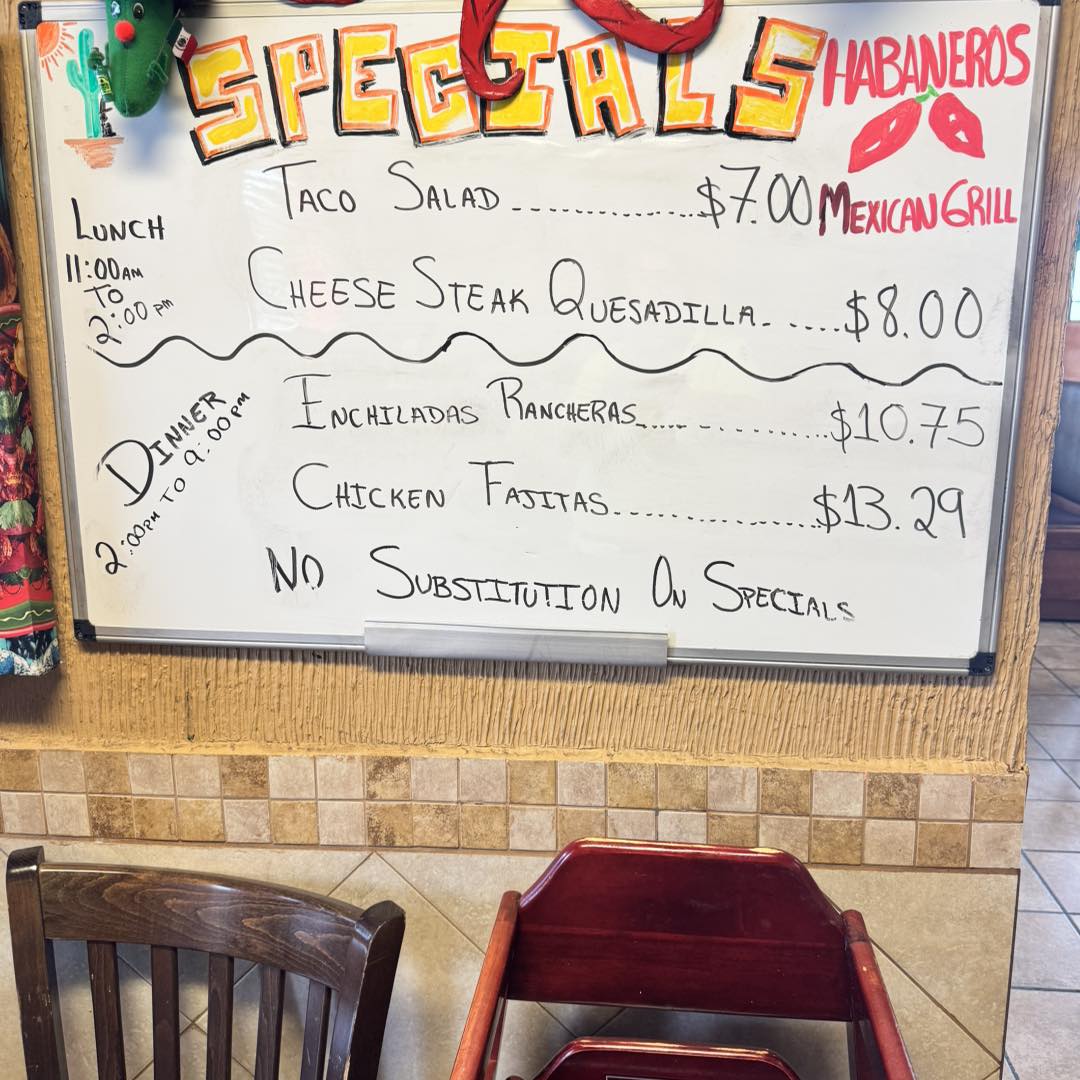 SPECIALS
HABANEROS
MEXICAN GRILL
LUNCH
11:00AM
TO
2:00 PM
TACO SALAD ................ $7.00
CHEESE STEAK QUESADILLA. ..... $8.00
DINNER
2:00PM TO 9:00PM
ENCHILADAS RANCHERAS ................ $10.75
CHICKEN FAJITAS ................ $13.29
NO SUBSTITUTION ON SPECIALS